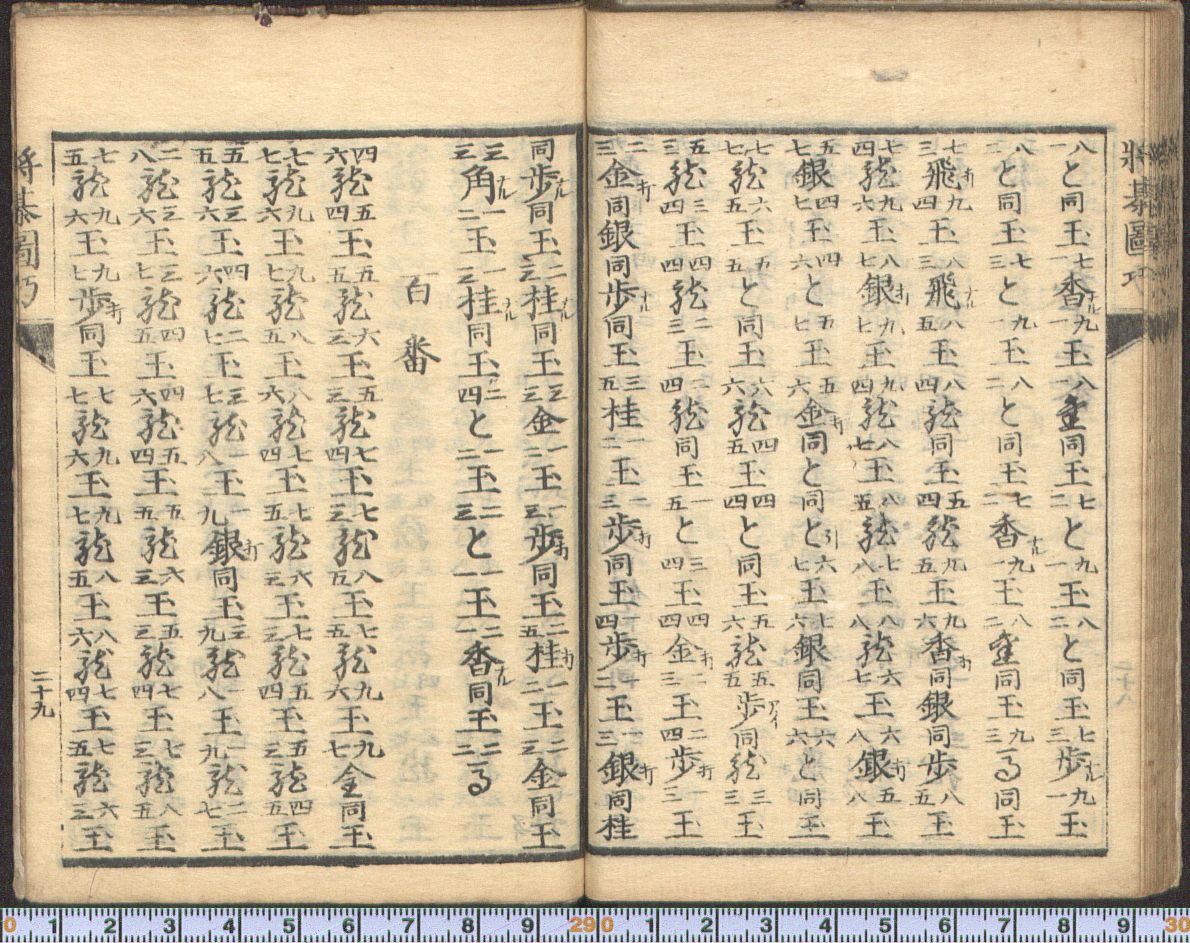 將棊圖巧
八一と同玉七一香ナル九二玉八一全同玉七二と九一玉八二と同玉七三歩ナル九一玉
八二と同玉七三と九一玉八二と同玉七二香ナル九一玉八二全同玉九三馬同玉
七三飛打九四玉八三飛ナル八五玉八四龍同玉五四龍九五玉九六香打同銀同歩八五玉
七四龍九六玉八七銀打九七玉九四龍八七玉八五龍七八玉八八龍六七玉六八銀打五八玉
五七銀四七玉四六と五七玉五六金打同と同と引六七玉六六銀同玉六六と同玉
七七龍六五玉五五と同玉六六龍四五玉四四と同玉六六龍五五歩アイ同龍三三玉
五三龍三四玉四四龍二三玉二四龍同玉一五と三四玉四四金二三玉二四歩打一三玉
二三金打同銀同歩ナル同玉三五桂一二玉一三歩打同玉一四歩打一二玉一三銀打同桂
二十八
同歩ナル同玉二三桂ナル同玉三三金一二玉一三歩打同玉二五桂打一二玉二三金同玉
三三角ナル一二玉一三桂ナル同玉二四と一二玉二三と一一玉一二香ナル同玉二二馬
百番
四六龍五四玉五五龍六三玉五三龍七四玉七三龍八五玉七五龍九六玉九七全同玉
七七龍九六玉九七龍八五玉八六龍七四玉七五龍六三玉七三龍五四玉五三龍四五玉
五五龍三六玉四六龍二七玉三七龍一八玉一九銀打同玉三九龍一八玉一九龍二七玉
二八龍三六玉三七龍四五玉四六龍五四玉五五龍六三玉五三龍七四玉七三龍八五玉
七五龍九六玉九七歩打同玉七七龍九六玉九七龍八五玉八六龍七四玉七五龍六三玉
將棊圖巧
二十九